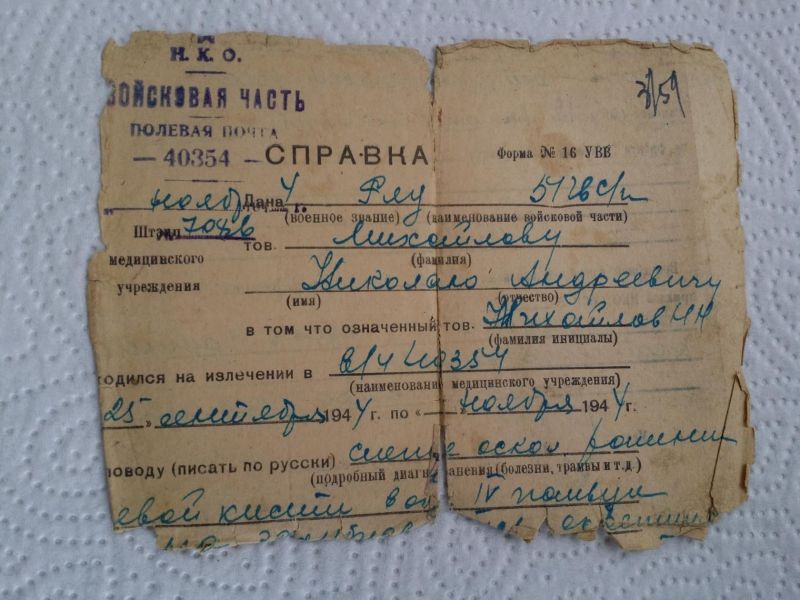 Н. К. О.
ВОЙСКОВАЯ ЧАСТЬ
ПОЛЕВАЯ ПОЧТА
— 40354 —
3/59
СПРАВКА Форма № 16 УВВ
ноябр Дана 4
(военное звание) (наименование войсковой части)
Штамп 7086 тов. Михайлову
медицинского (фамилия)
учреждения Николаю Андреевичу
(имя) (отчество)
в том что означенный тов. Михайлов НА
(фамилия инициалы)
одился на излечении в в/ч 40354
(наименование медицинского учреждения)
25 „ сентября 1944 г. по « ноября 1944 г.
поводу (писать по русски) слепое оскол ранение
(подробный диагн анения (болезни, травмы и т.д.)
евой кисти в об IV пальца